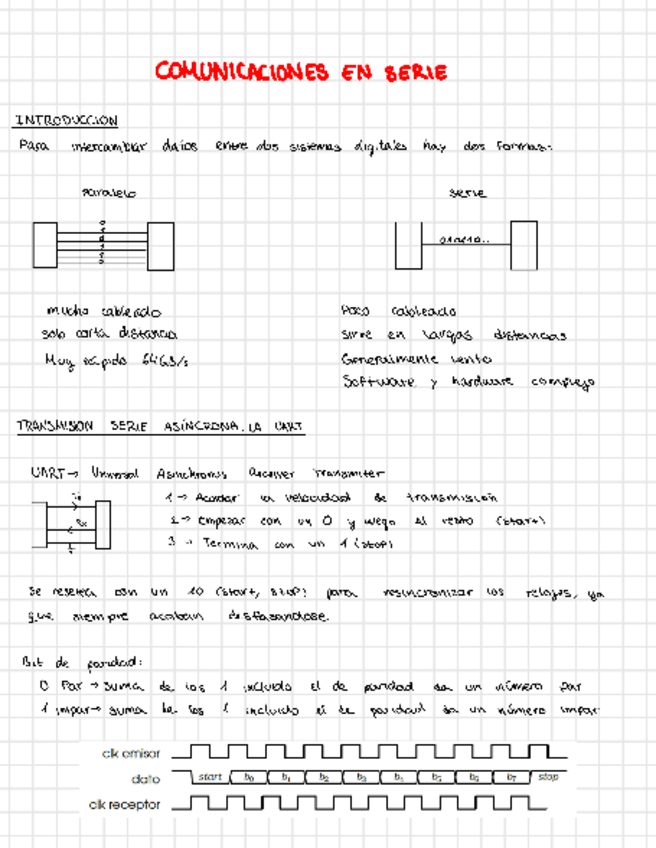 COMUNICACIONES EN SERIE
INTRODUCCION
Para intercambiar datos entre dos sistemas digitales hay dos formas:
paralelo
serie
mucho cableado
solo corta distancia
Muy rápido 64GB/s
Poco cableado
sirve en largas distancias
Generalmente lento
Software y hardware complejo
TRANSMISION SERIE ASÍNCRONA. LA UART
UART → Universal Asinchronus Receiver Transmiter
Rx
1 → Acordar la velocidad de transmisión
2 → Empezar con un 0 y luego el resto (start)
3 → Termina con un 1 (stop)
Se resetea con un 10 (start, stop) para resincronizar los relojes, ya
que siempre acaban desfasandose.
Bit de paridad:
0 Par → suma de los 1 incluido el de paridad da un número par
1 impar → suma de los 1 incluido el de paridad da un número impar
clk emisor
dato start b0 b1 b2 b3 b5 b6 b7 stop
clk receptor